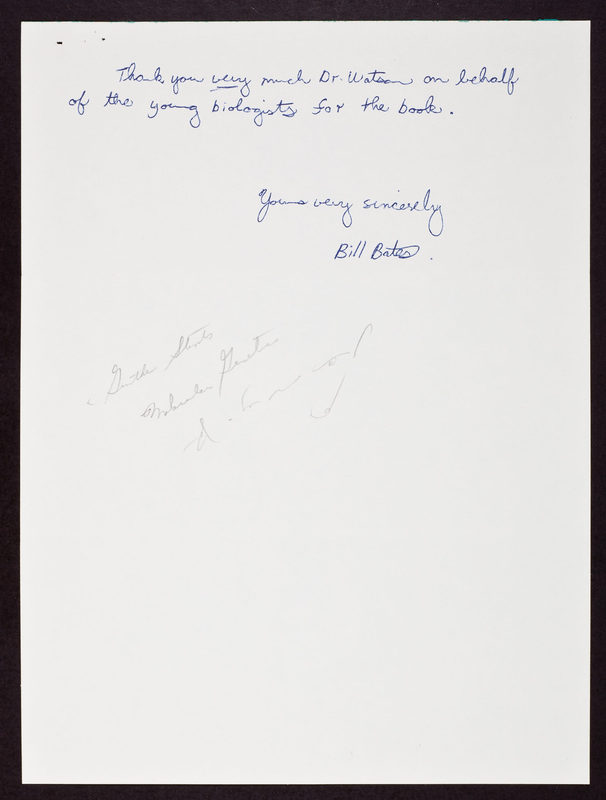 Thank you very much Dr. Watson on behalf
of the young biologists for the book.
Yours very sincerely
Bill Bates.
Gunther Stent
Molecular Genetics